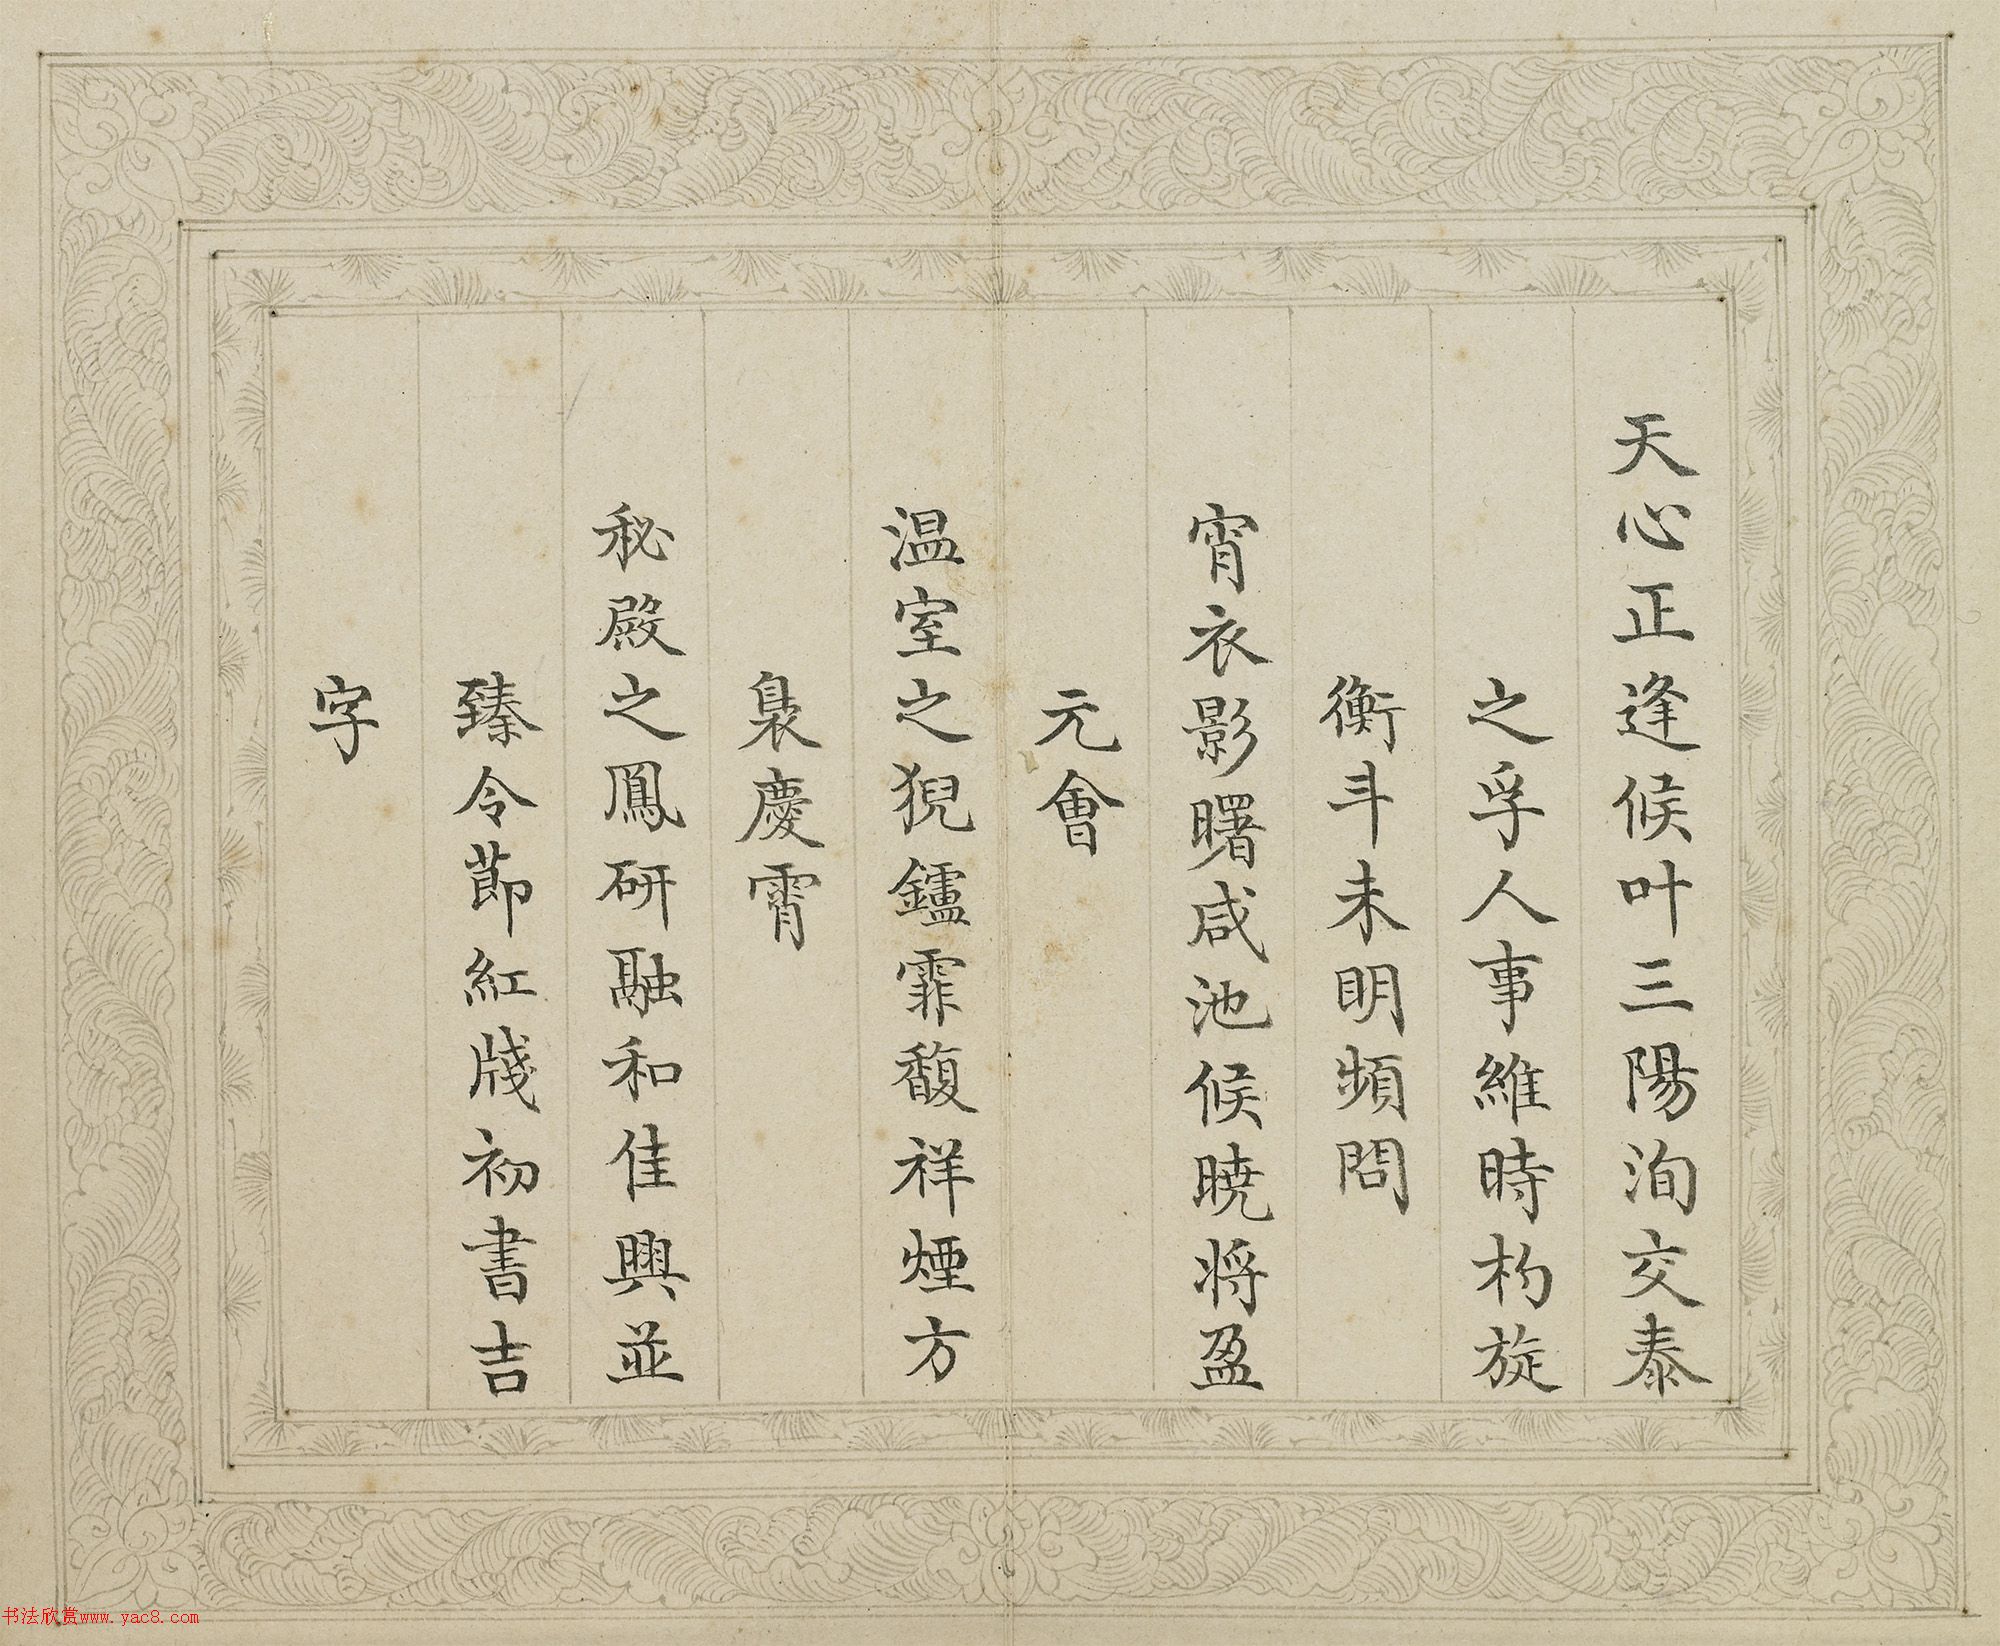 天心正逢候叶三陽洵交泰
之孚人事維時杓旋
衡斗未明頻問
宵衣影曙咸池候曉将盈
元會
温室之猊鑪霏馥祥煙方
裊慶霄
秘殿之鳳研融和佳興並
臻令節紅牋初書吉
字
书法欣赏www.yac8.com